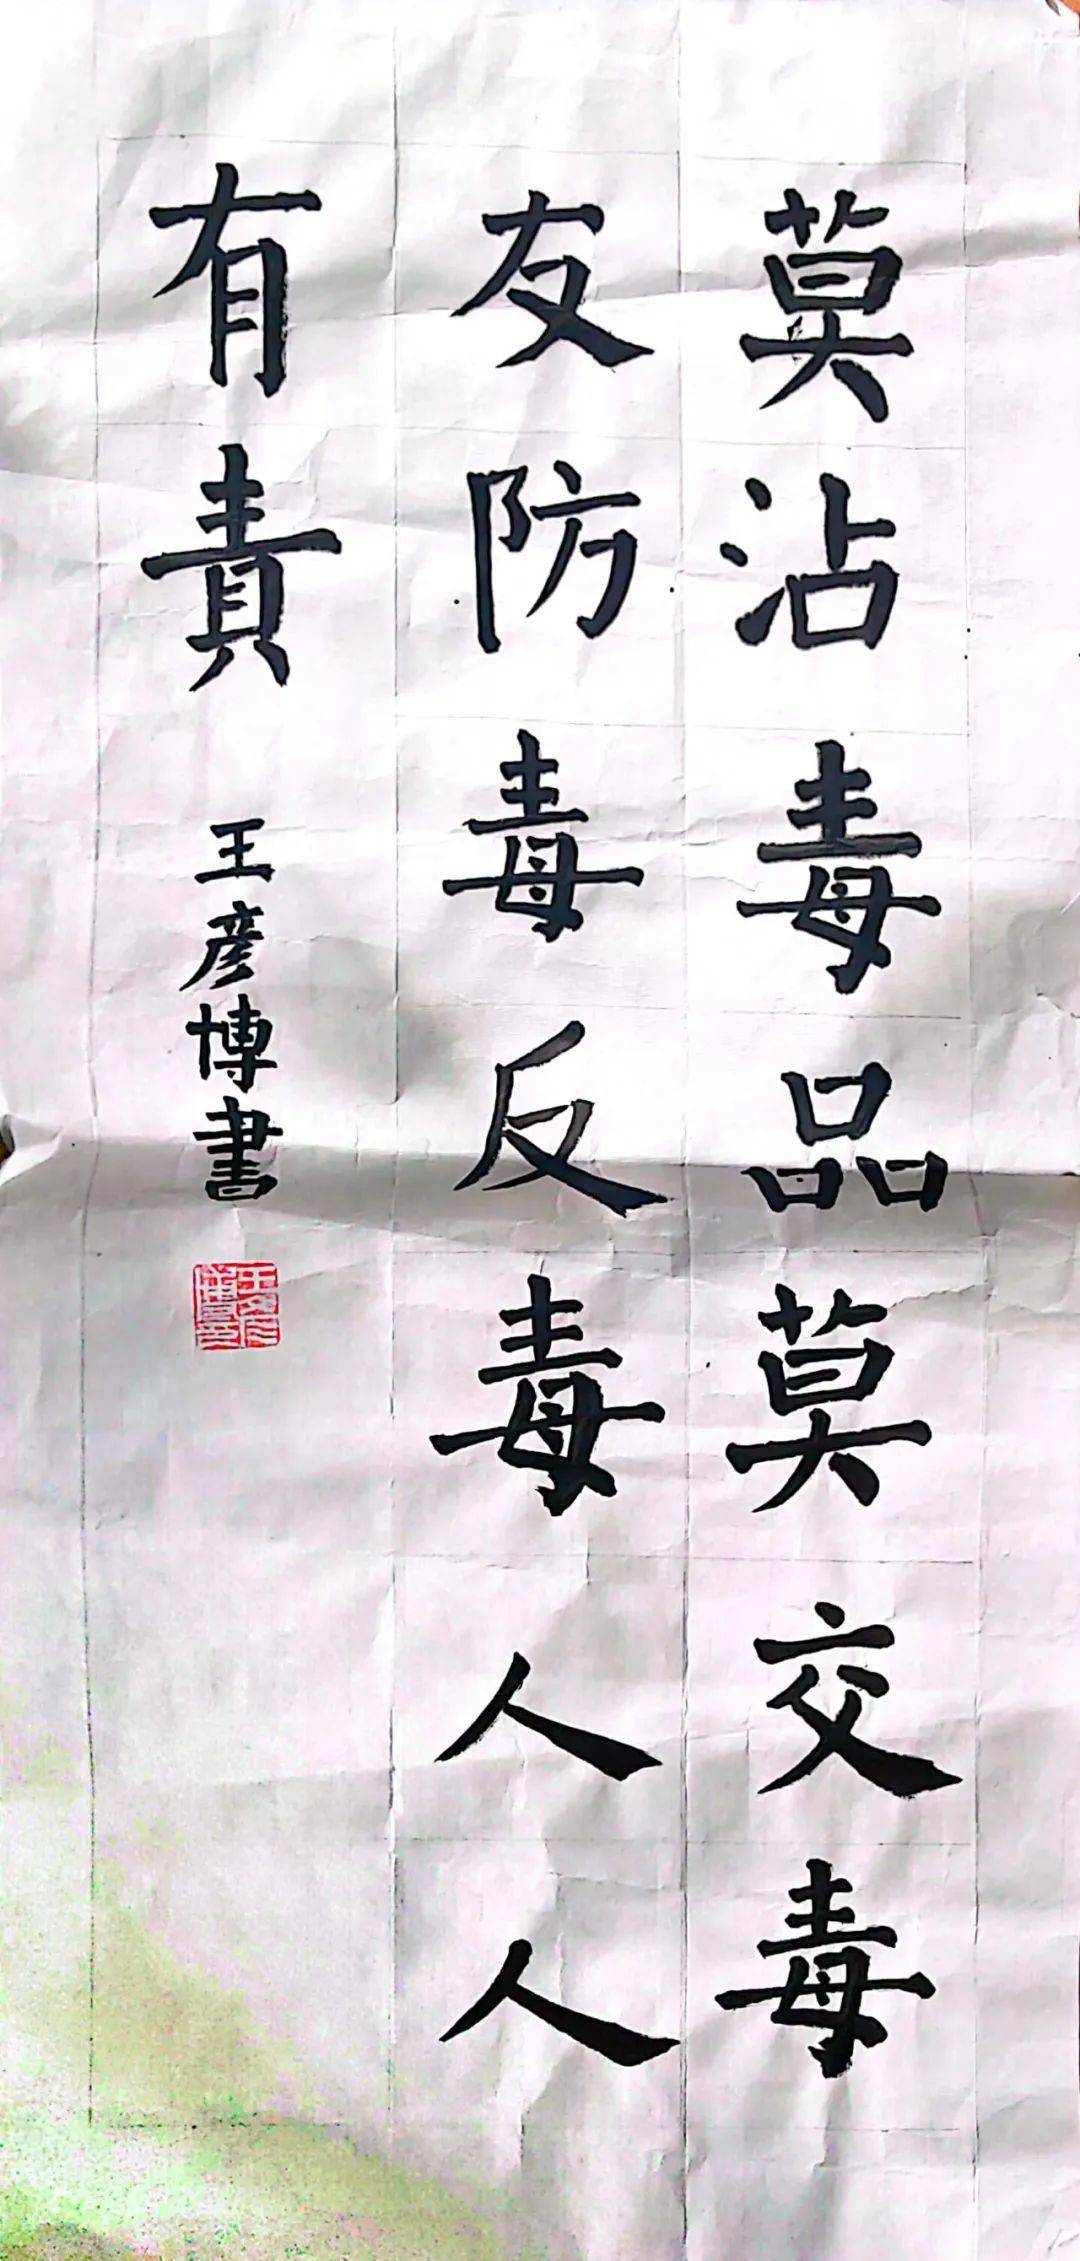 莫沾毒品莫交毒
友防毒反毒人人
有責
王彦博書